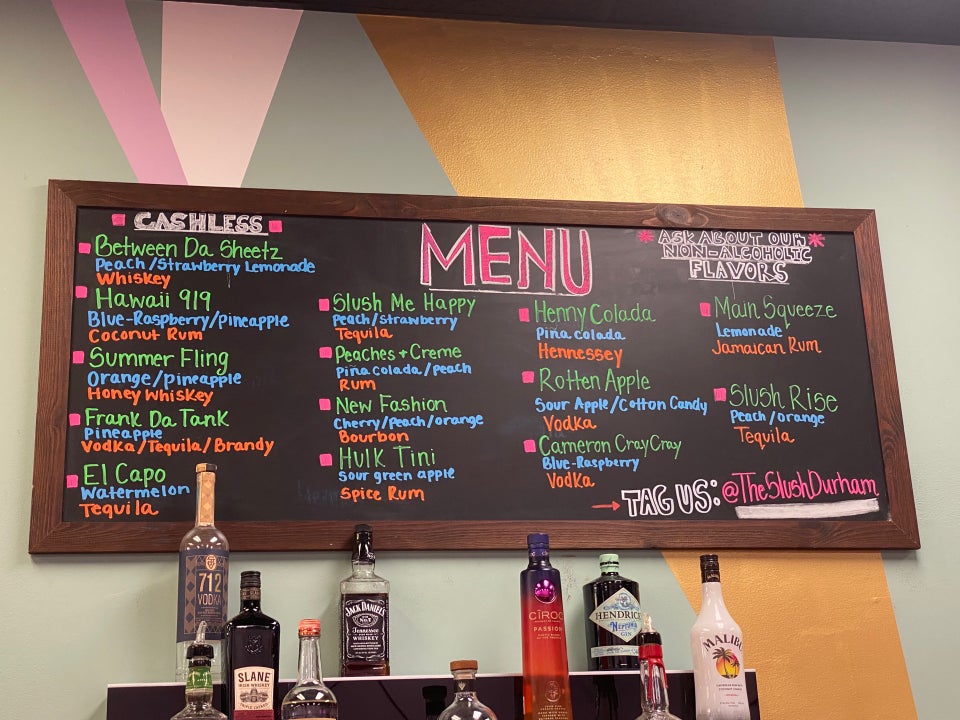 CASHLESS
Between Da Sheetz
Peach/Strawberry Lemonade
Whiskey
Hawaii 919
Blue-Raspberry/Pineapple
Coconut Rum
Summer Fling
Orange/Pineapple
Honey Whiskey
Frank Da Tank
Pineapple
Vodka/Tequila/Brandy
El Capo
Watermelon
Tequila
MENU
Slush Me Happy
Peach/Strawberry
Tequila
Peaches + Creme
Piña colada/Peach
Rum
New Fashion
Cherry/Peach/orange
Bourbon
Hulk Tini
Sour green apple
Spice Rum
Henny Colada
Piña colada
Hennessey
Rotten Apple
Sour Apple/Cotton Candy
Vodka
Cameron CrayCray
Blue-Raspberry
Vodka
* ASK ABOUT OUR *
NON-ALCOHOLIC
FLAVORS
Main Squeeze
Lemonade
Jamaican Rum
Slush Rise
Peach/orange
Tequila
→ TAG US: @TheSlushDurham
712
VODKA
SLANE
IRISH WHISKEY
JACK DANIEL'S
Tennessee
WHISKEY
CÎROC
PASSION
HENDRICK'S
Neptunia
GIN
MALIBU